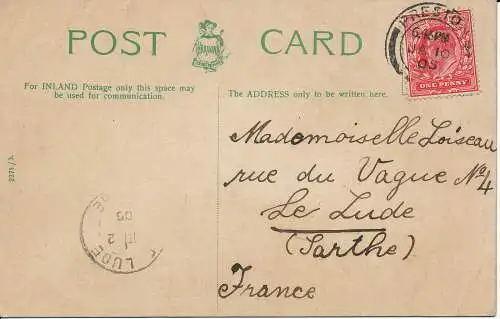 POST CARD
For INLAND Postage only this space may
be used for communication.
The ADDRESS only to be written here.
PRESTO
10
05
ONE PENNY
Mademoiselle Loiseau
rue du Vague No 4
Le Lude
(Sarthe)
France
2371/3.
LUDE
2
05